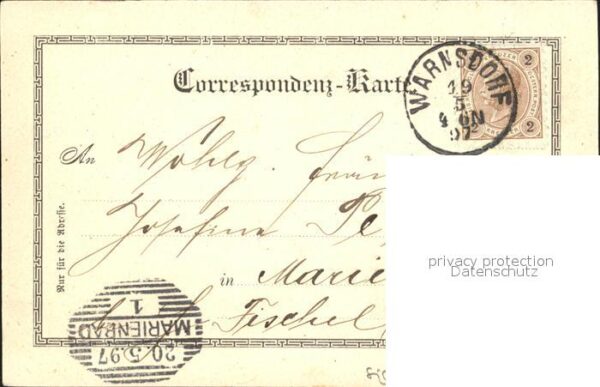 Correspondenz-Karte
2
2
WARNSDORF
19
5
97
An Wohlg.
Josefine
Nur für die Adresse.
in Marie
Fischel
MARIENBAD
1
20.5.97
privacy protection
Datenschutz